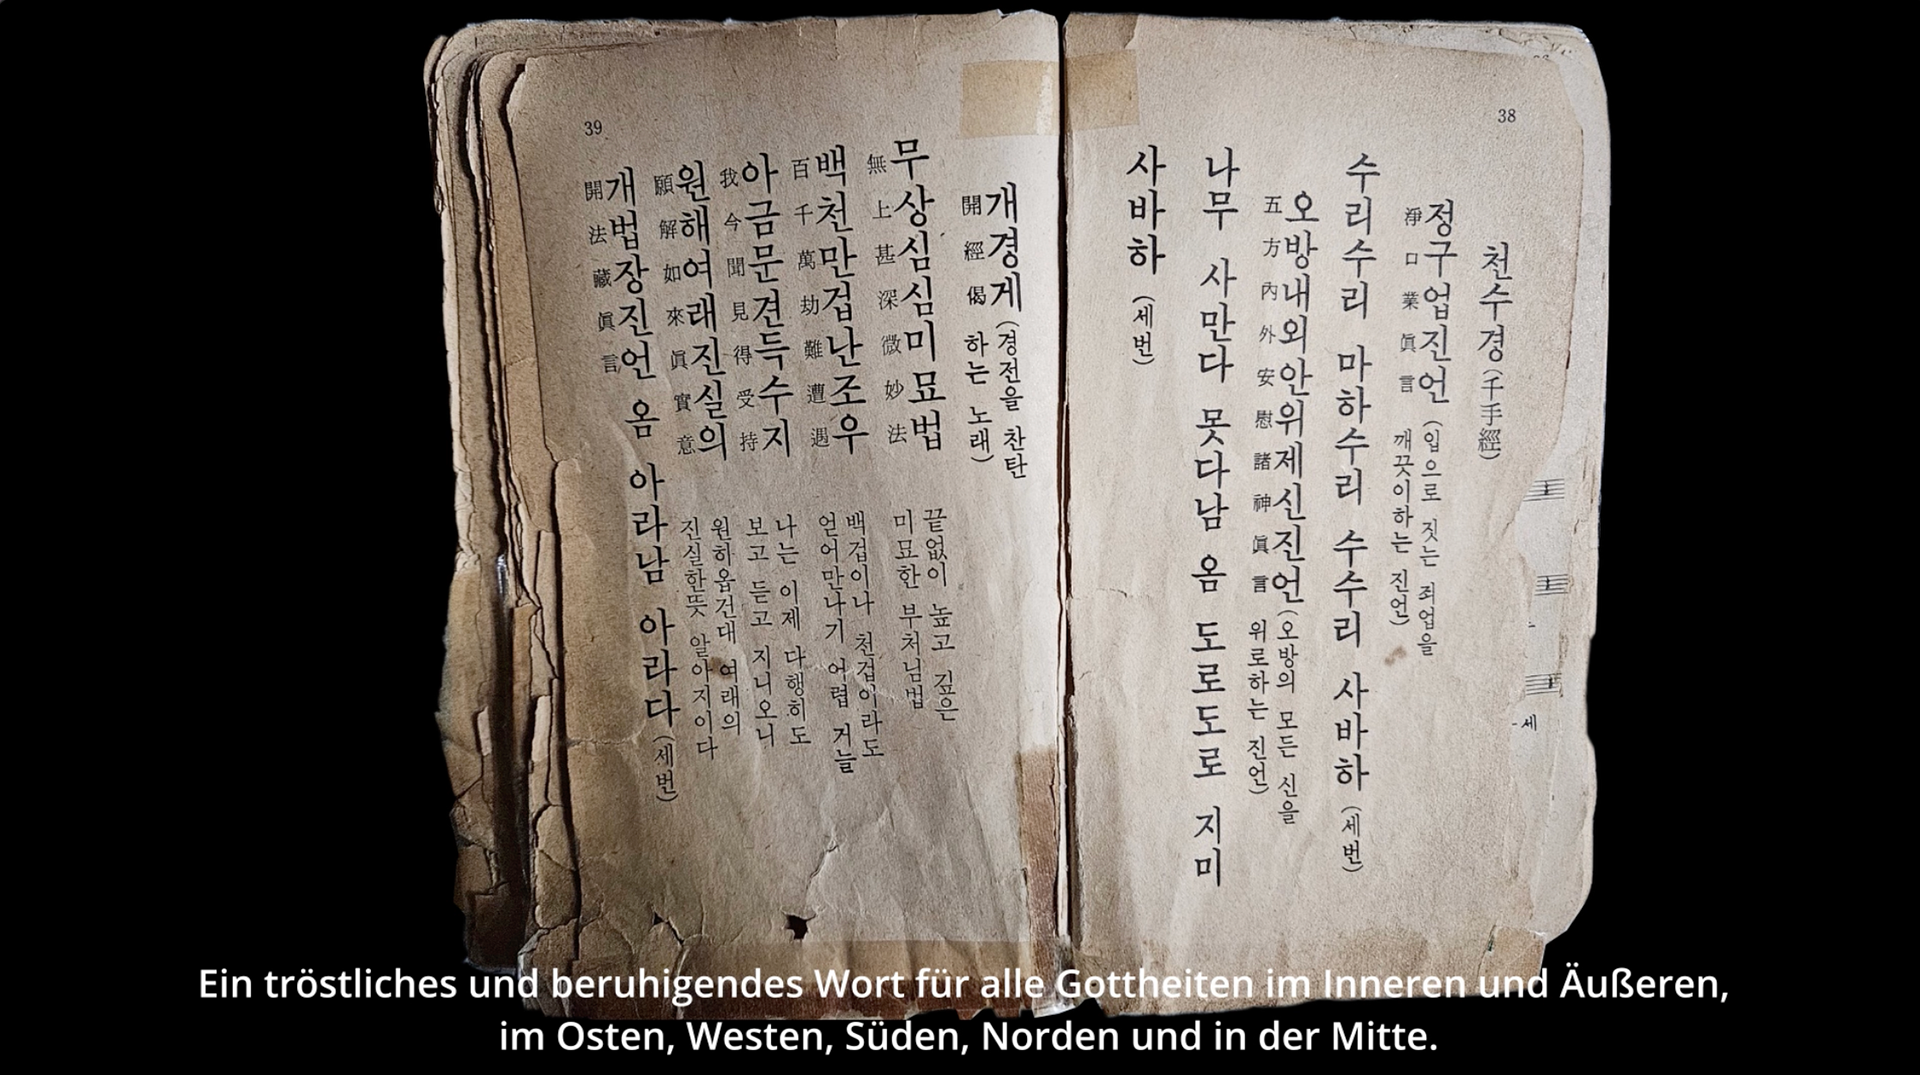 38
천수경 (千手經)
정구업진언 (입으로 짓는 죄업을
깨끗이하는 진언)
淨口業眞言
수리수리 마하수리 수수리 사바하 (세번)
오방내외안위제신진언 (오방의 모든 신을
위로하는 진언)
五方內外安慰諸神眞言
나무 사만다 못다남 옴 도로도로 지미
사바하 (세번)
39
개경게 (경전을 찬탄
하는 노래)
開經偈
무상심심미묘법
無上甚深微妙法
끝없이 높고 깊은
미묘한 부처님법
백천만겁난조우
百千萬劫難遭遇
백겁이나 천겁이라도
얻어만나기 어렵거늘
아금문견득수지
我今聞見得受持
나는 이제 다행히도
보고 듣고 지니오니
원해여래진실의
願解如來眞實意
원하옵건대 여래의
진실한뜻 알아지이다
개법장진언 옴 아라남 아라다 (세번)
開法藏眞言
세
Ein tröstliches und beruhigendes Wort für alle Gottheiten im Inneren und Äußeren,
im Osten, Westen, Süden, Norden und in der Mitte.